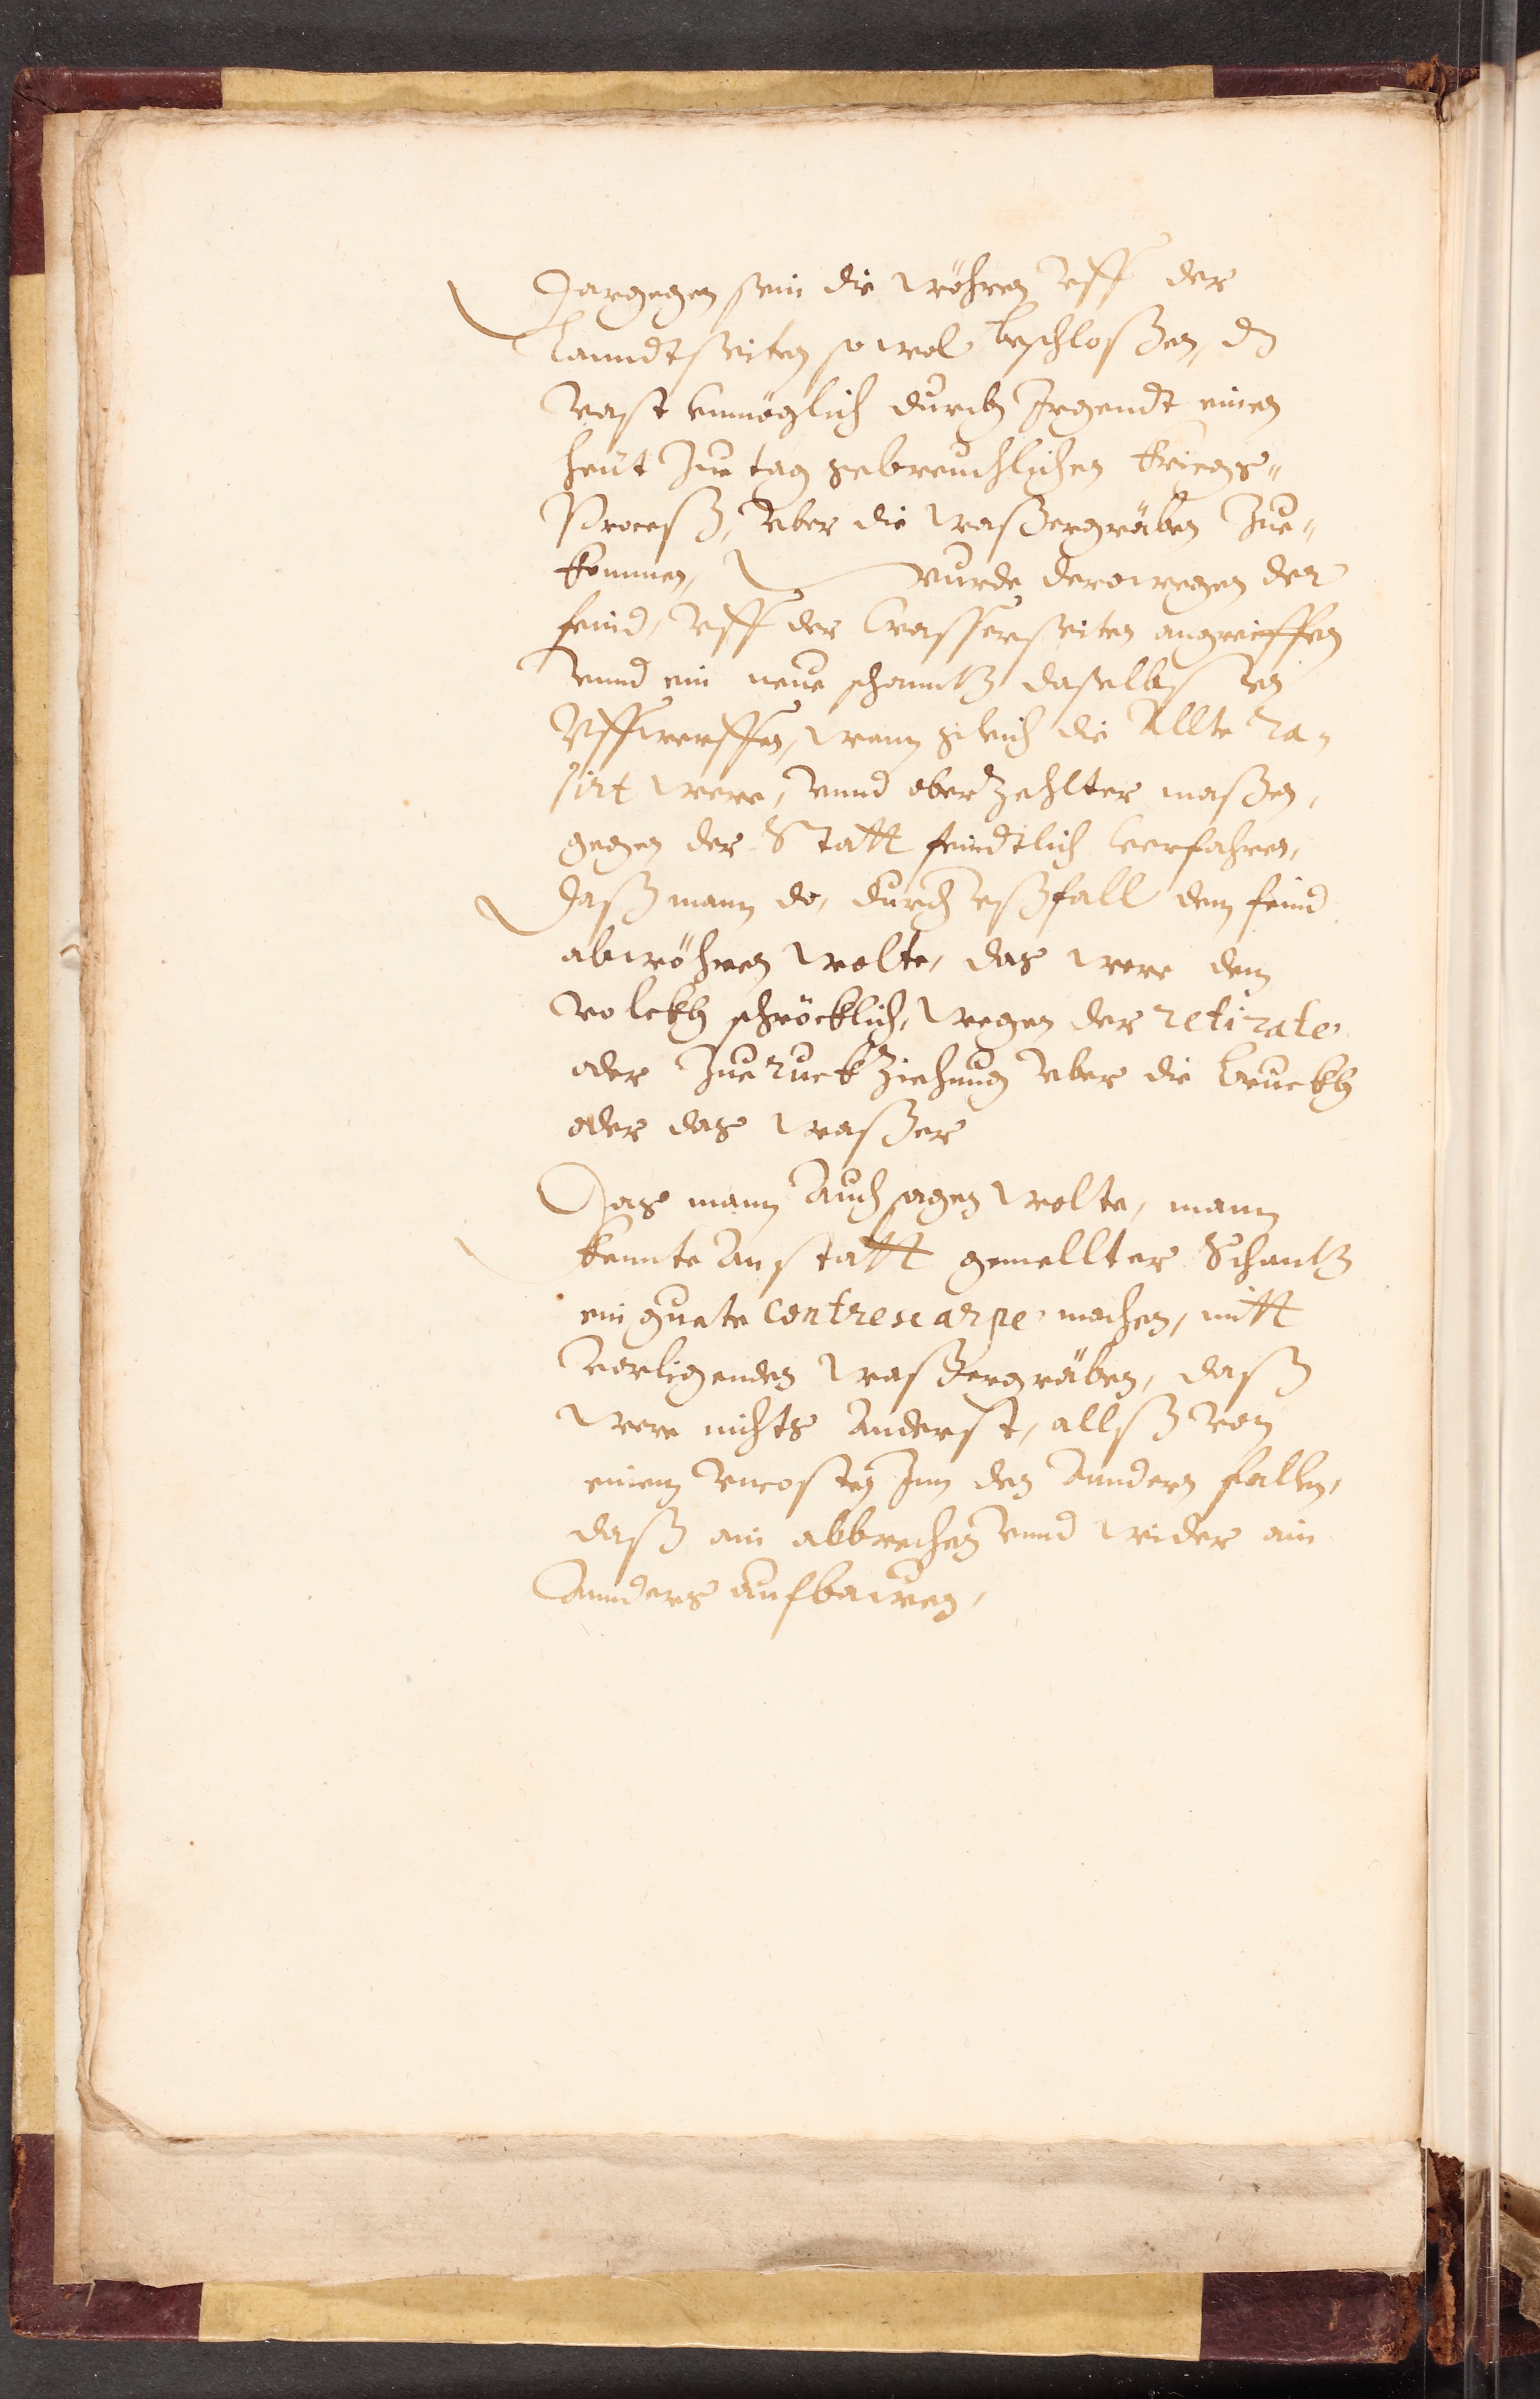 Dargegen sein die wöhren vff der
Lanndtseiten so wol beschloßen, dz
vast vnmöglich durch Irgendt einen
heüt zue tag gebreuchlichen kriegs=
Proceß, vber die waßergräben zue=
kommen, wurde derowegen der
feind, vff der wasserseiten angreiffen
vnnd ein neue schanntz daselbs
vffwerffen, wann gleich die Allte ra=
sirt were, vnnd oberzehlter maßen,
gegen der Statt feindtlich verfahren,
Daß mann do, durch Außfall dem feind
abwöhren wolte, das were dem
volckh schröcklich, wegen der retirate
oder zue ruckziehung vber die bruckh
oder das waßer
Das mann Auch sagen wolte, mann
kennte Anstatt gemellter Schantz
ein guete contrescarpe machen, mitt
vorligenden waßergräben, daß
were nichts Anderst, allß von
einem vncosten Inn den Anndern fallen,
daß ein abbrechen vnnd wider ein
Annders Aufbawen,